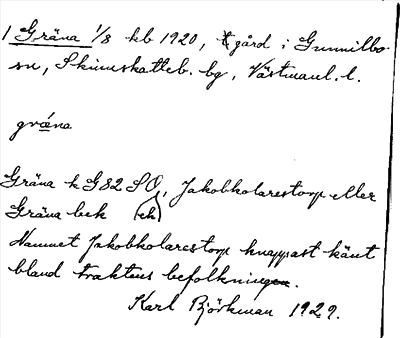 1 Gräna 1/8 kb 1920, gård i Gunnilbo
sn, Skinnskatteb. bg, Västmanl. l.
græ̀na
Gräna k G82 SO, Jakobkolarestorp eller
Gräna bek (ek)
Namnet Jakobkolarestorp knappast känt
bland traktens befolkningen.
Karl Björkman 1929.